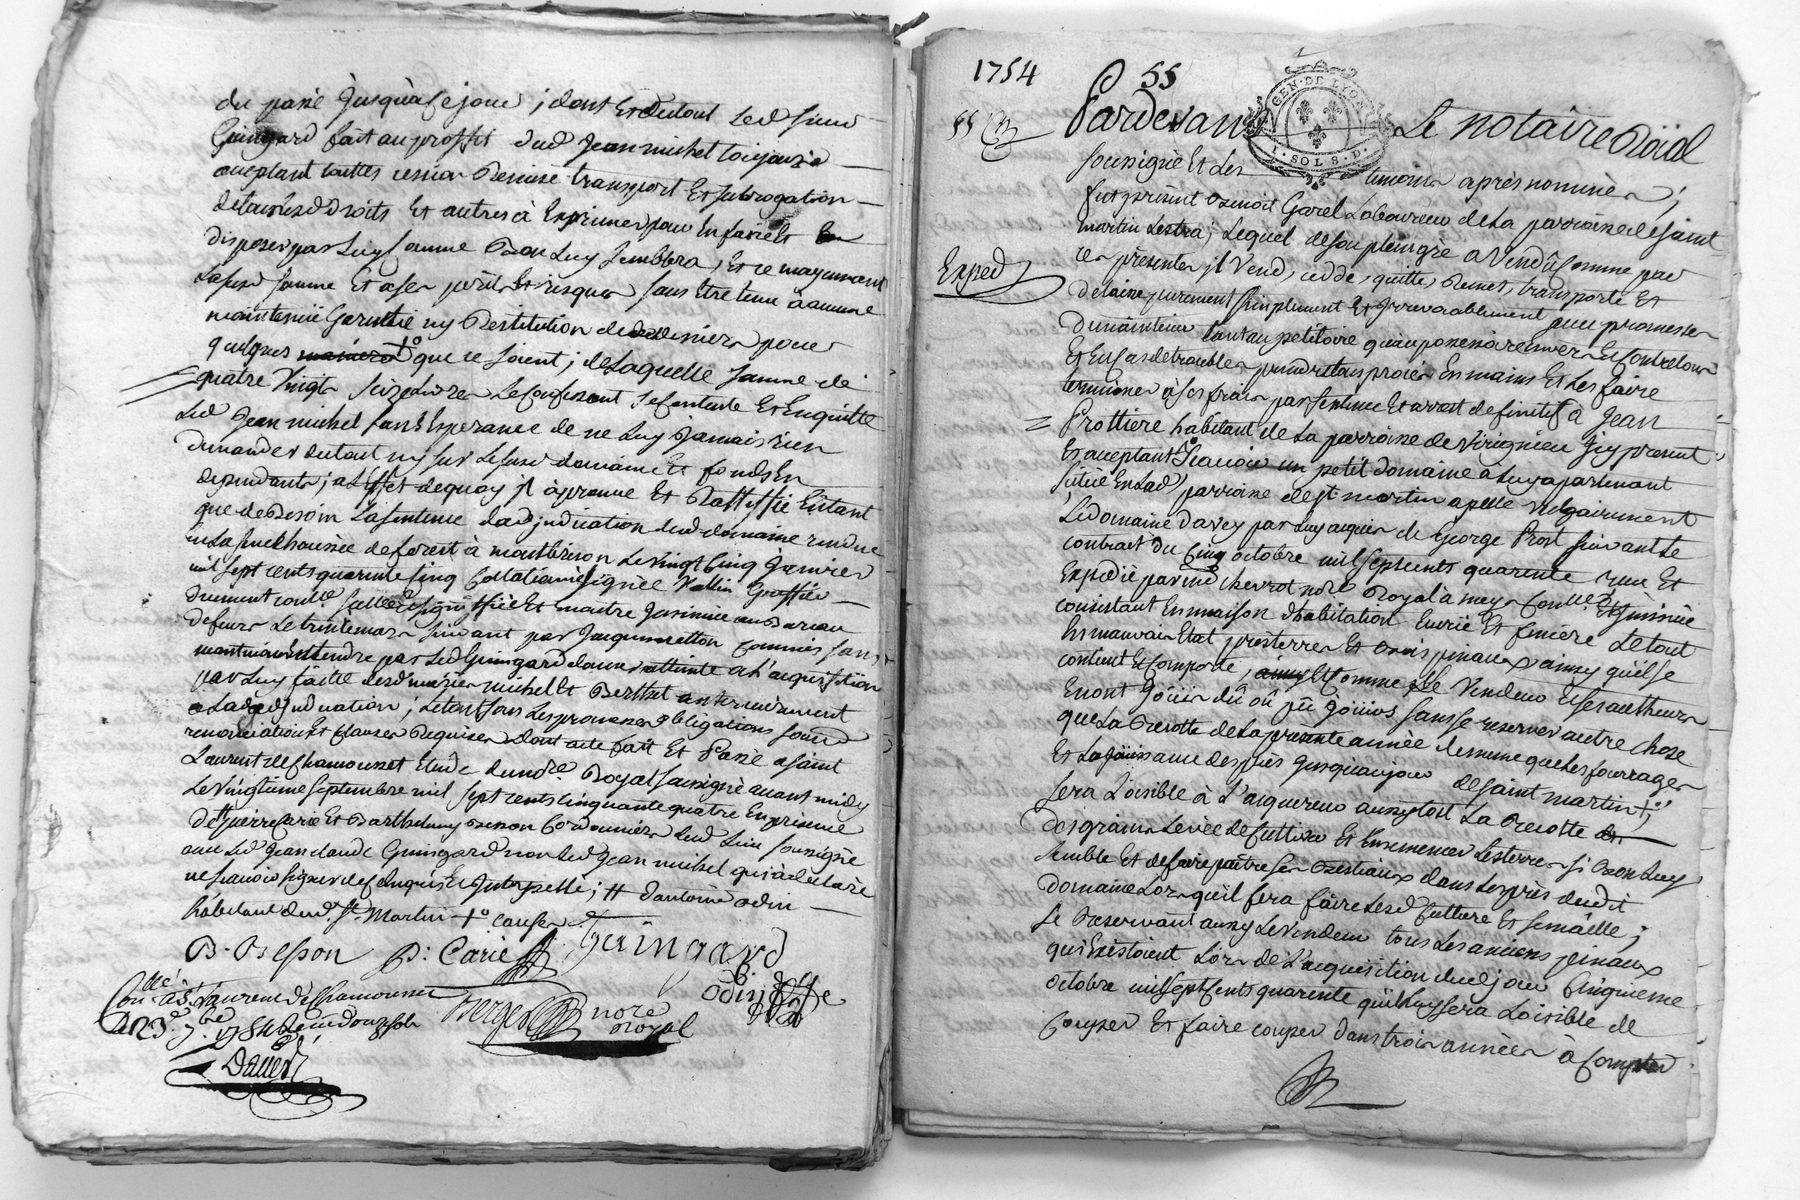 du passé jusqu'à ce jour ; dont Et du tout led sieur
Guingard fait au proffit dud Jean michel toujours
acceptant touttes cession Remise transport Et subrogation
de tous ses droits Et autres à Exprimer pour En faire Et
disposer par Luy comme Bon Luy semblera, Et ce moyennant
lasusd somme Et a ses perils Et risques sans Etre tenu à aucune
maintenüe Garentie ny Restitution de deniers pour
quelques +° que ce soient ; de Laquelle somme de
quatre Vingt seize Livres Le confessant se contente Et En quitte
Led Jean michel sans Esperance de ne Luy Jamais rien
demander du tout ny sur Le susd domaine Et fonds En
dependants ; a L'effet de quoy il approuve Et Ratiffie Entant
que de Besoin La sentence dadjudication dud domaine rendue
En La senechaussée de forest à montbrison Le vingt cinq Janvier
mil sept cents quarente cinq Collationné signée Greffier
düement coll.ée scellée signiffiée Et
de feurs Le trente mars suivant par commis sans
néantmoins Entendre par Led Guingard donner atteinte a L'acquisition
par Luy faitte desd mariés michel Et Berthet anterieurement
a Lad adjudication ; Le tout sous Les promesses obligations soum.
renonciations Et clauses Requises dont acte fait Et Passé a saint
Laurent de chamousset Etude du no.re Royal soussigné avant midy
Le vingtième septembre mil sept cents cinquante quatre En présence
de Pierre Carie Et Barthelemy Besson Cordonniers dud Lieu soussignés
avec Led Jean claude Guingard non Led Jean michel qui à declaré
ne sçavoir signer de ce Enquis Et Interpellé ; # d'antoine odin
habitant dud. St. Martin +° causes
B. Besson P: Carie Guingard
Con.llé à St. Laurent de Chamousset Berger noré royal odin
Ce 23.e 7.bre 1754 Reçu douze sols
Daverd
1754
55
55
GEN. DE LYON
1. SOL 8. D.
Pardevant Le notaire Roïal
soussigné Et Les temoins après nommés ;
fut présent Benoit Garel Laboureur de La parroisse de saint
martin Lestra ; Lequel de son plein gré a Vendû comme par
Exped
ces présentes il Vend, cedde, quitte, Remet, transporte Et
delaisse purement simplement Et Irrevocablement avec promesse
de maintenir tant au petitoire qu'au possessoire Envers Et Contre tous
Et En cas de trouble prendre tous proces En mains Et Les faire
terminer à ses frais par sentence Et arrest definitif à Jean
Prottiere habitant de La parroisse de Virigneu Icy present
Et acceptant sçavoir un petit domaine à Luy apartenant
situé En Lad parroisse de st. martin apellé vulgairement
Le domaine davey par Luy acquis de George Prost suivant Le
contract du cinq octobre mil sept cents quarente reçu Et
Expedié par md chevrot no.re Royal à meys con.llé Et Insinüé
consistant En maison d'habitation Ecurie Et feniere Le tout
En mauvais Etat prés terres Et bois pinaux ainsy qu'il se
contient Et comporte, Et comme Le Vendeur Et ses autheurs
En ont joüis dû ou pû joüirs sans se reserver autre chose
que La Recolte de La presente année de meme que Les fourrages
Et La joüissance des prés jusqu'au jour de saint martin + ;
sera Loisible à L'acquereur aussytost La Recolte
des grains Levée de Cultiver Et Ensemencer Les terres si Bon Luy
semble Et de faire paitre ses Bestiaux dans Les prés dudit
domaine Lors qu'il fera faire Lesd Culture Et semaille ;
se Reservant aussy Le vendeur tous Les anciens pinaux
qui Existoient Lors de L'acquisition dud jour cinquieme
octobre mil sept cents quarente qu'il luy sera Loisible de
Couper Et faire couper dans trois années à compter